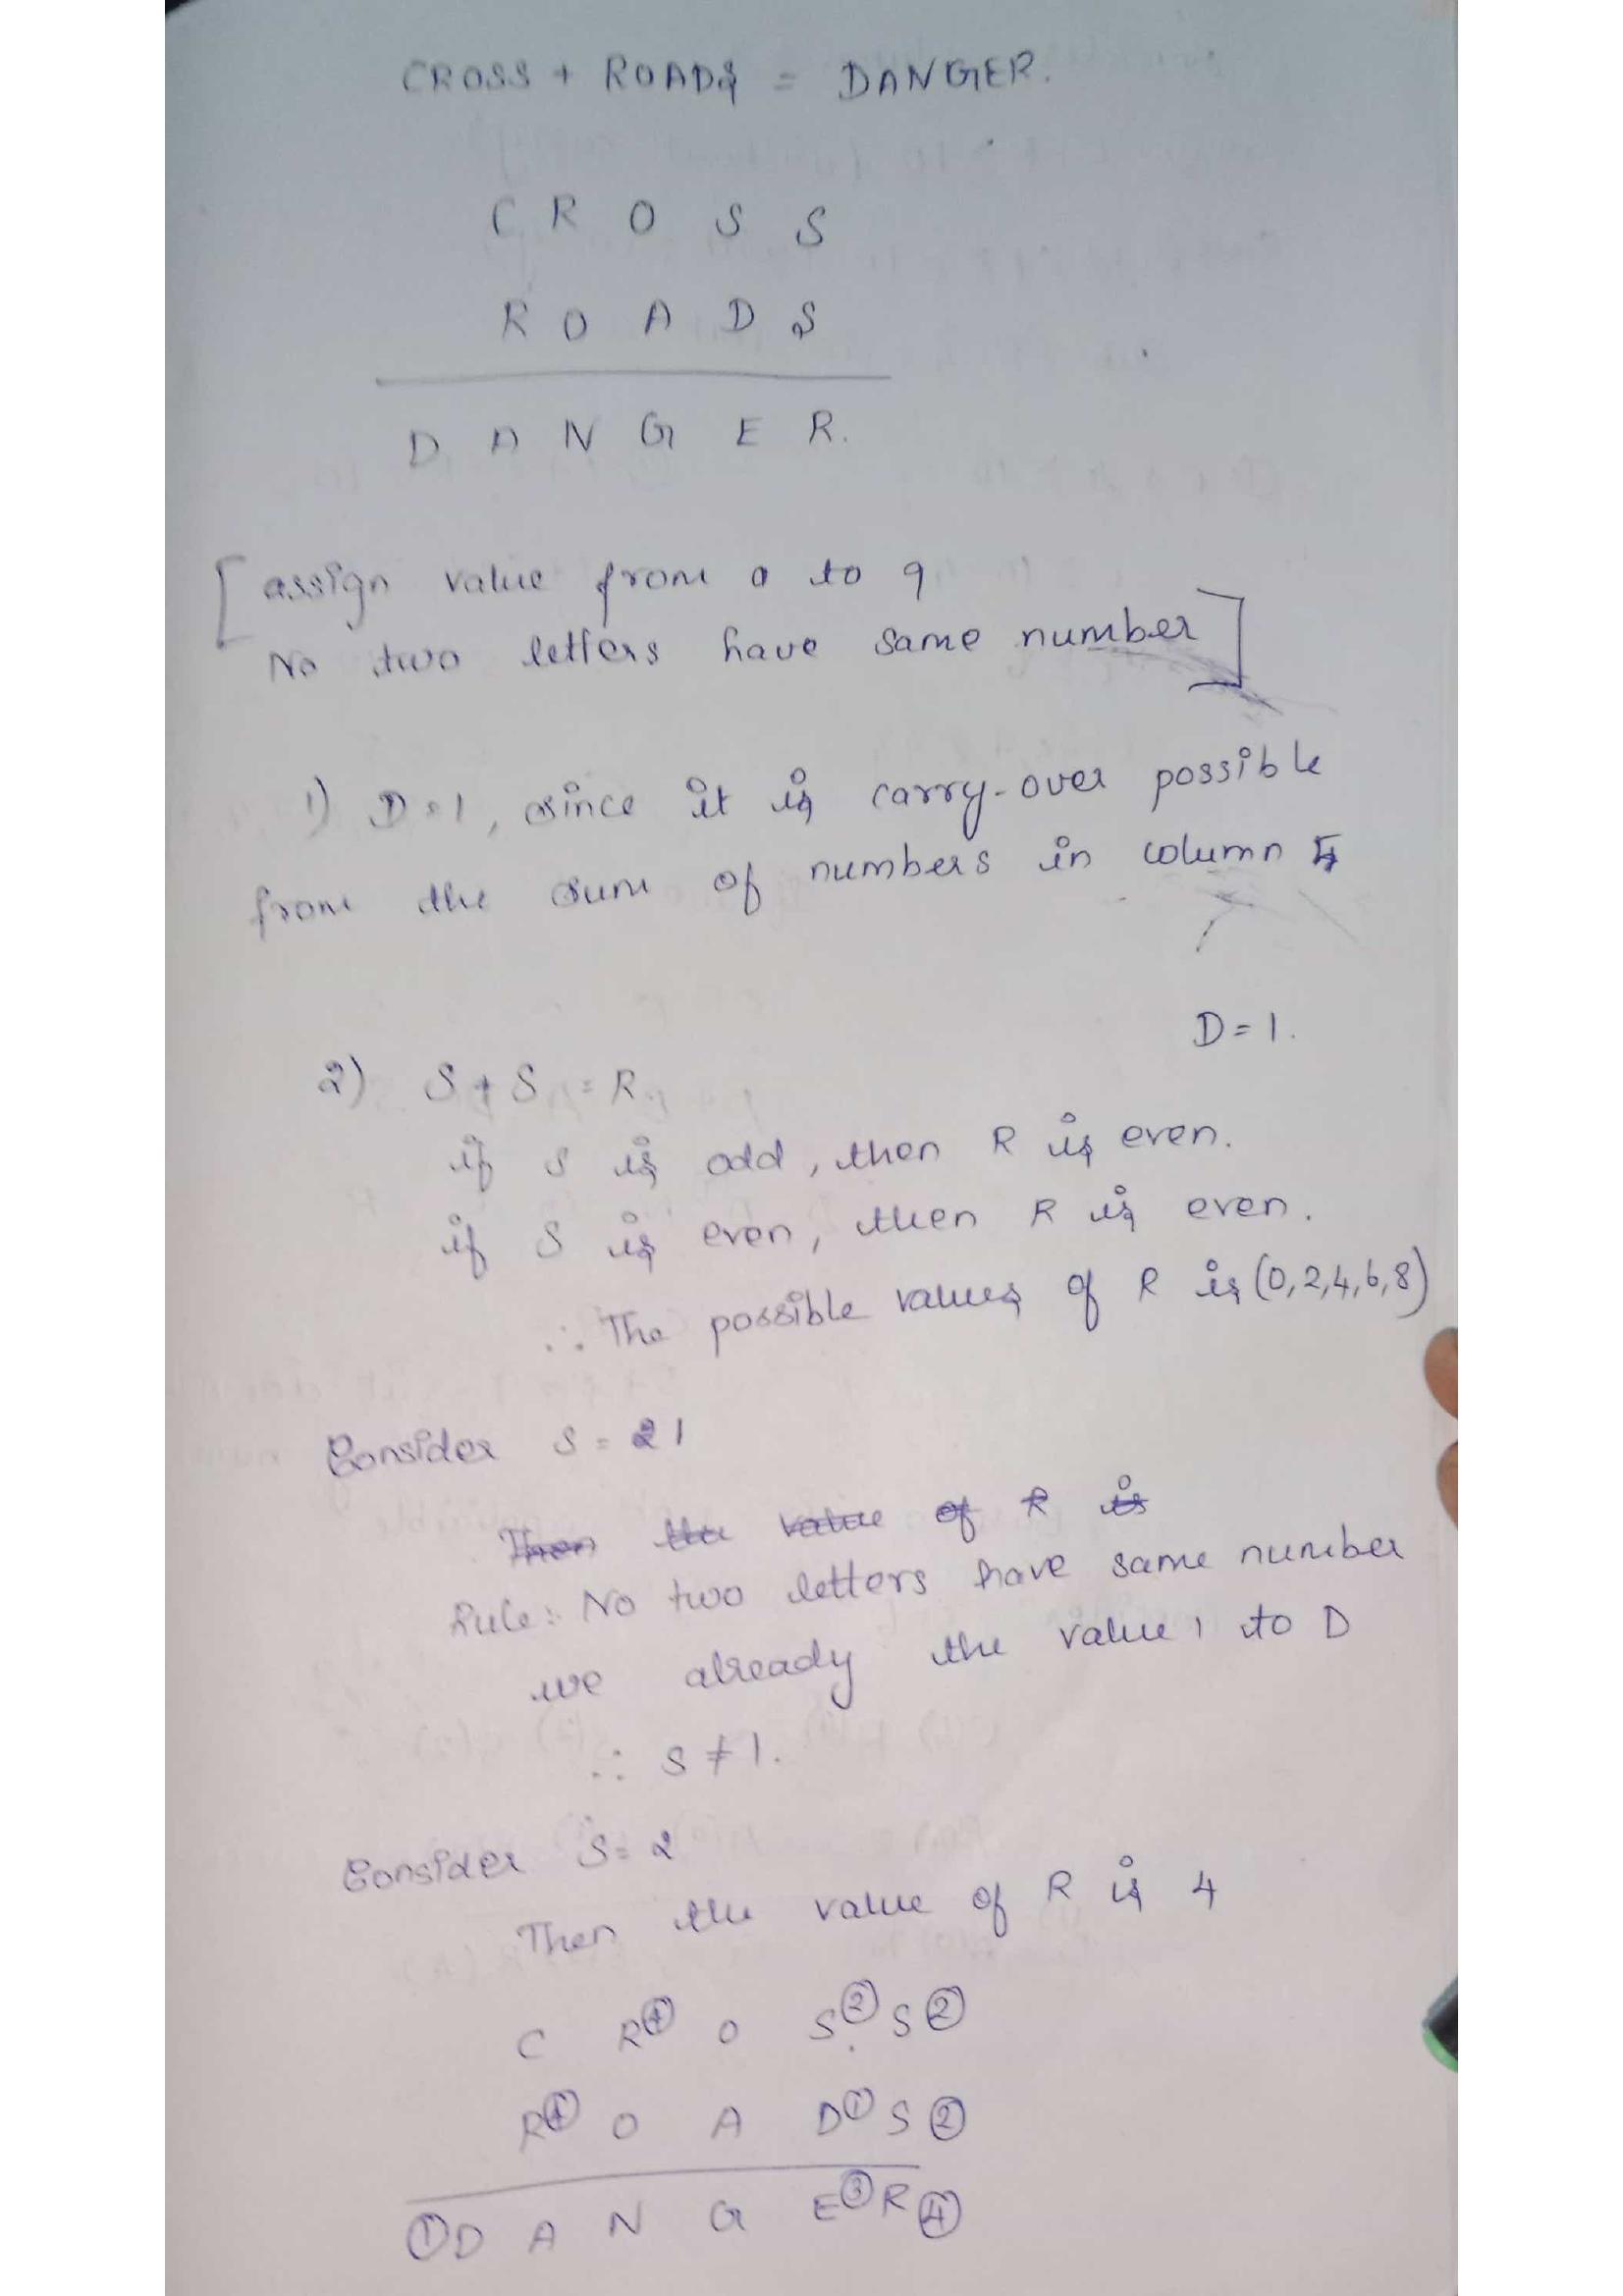 CROSS + ROADS = DANGER.
C R O S S
R O A D S
D A N G E R.
[assign value from 0 to 9
No two letters have same number]
1) D=1, since it is carry-over possible
from the sum of numbers in column 5
D=1.
2) S + S = R.
if S is odd, then R is even.
if S is even, then R is even.
∴ The possible values of R is (0,2,4,6,8)
Consider S = 1
Then the value of R is
Rule: No two letters have same number
we already the value 1 to D
∴ S ≠ 1.
Consider S = 2
Then the value of R is 4
C R④ O S② S②
R④ O A D① S②
①D A N G E③ R④